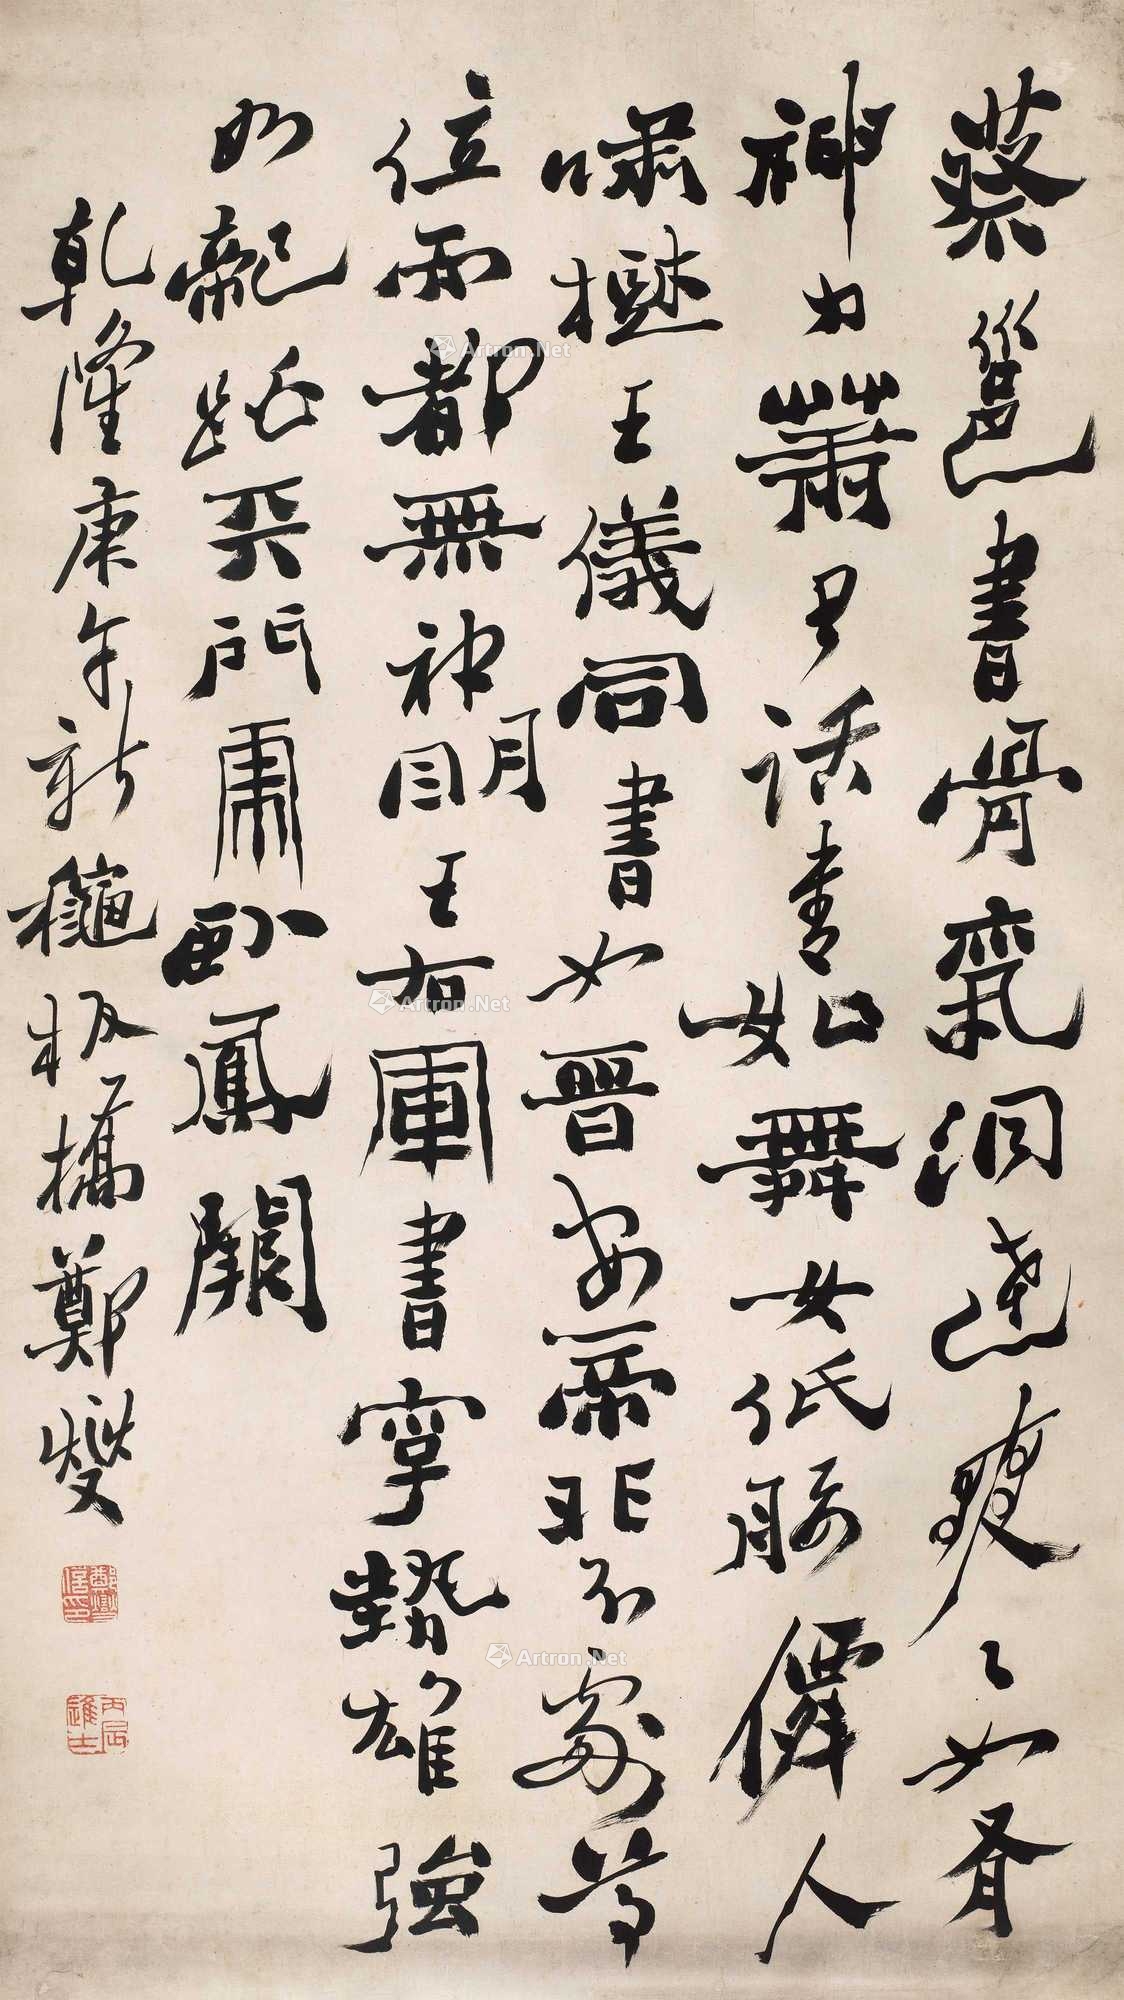 蔡邕書骨氣洞達爽爽如有
神力蕭子雲書如舞女低腰僊人
嘯樹王儀同書如晉安帝非不處尊
位而都無神明王右軍書字勢雄強
如龍跳天門虎臥鳳闕
乾隆庚午新秋板橋鄭燮
鄭燮信印
丙辰進士
Artron.Net
Artron.Net
Artron.Net